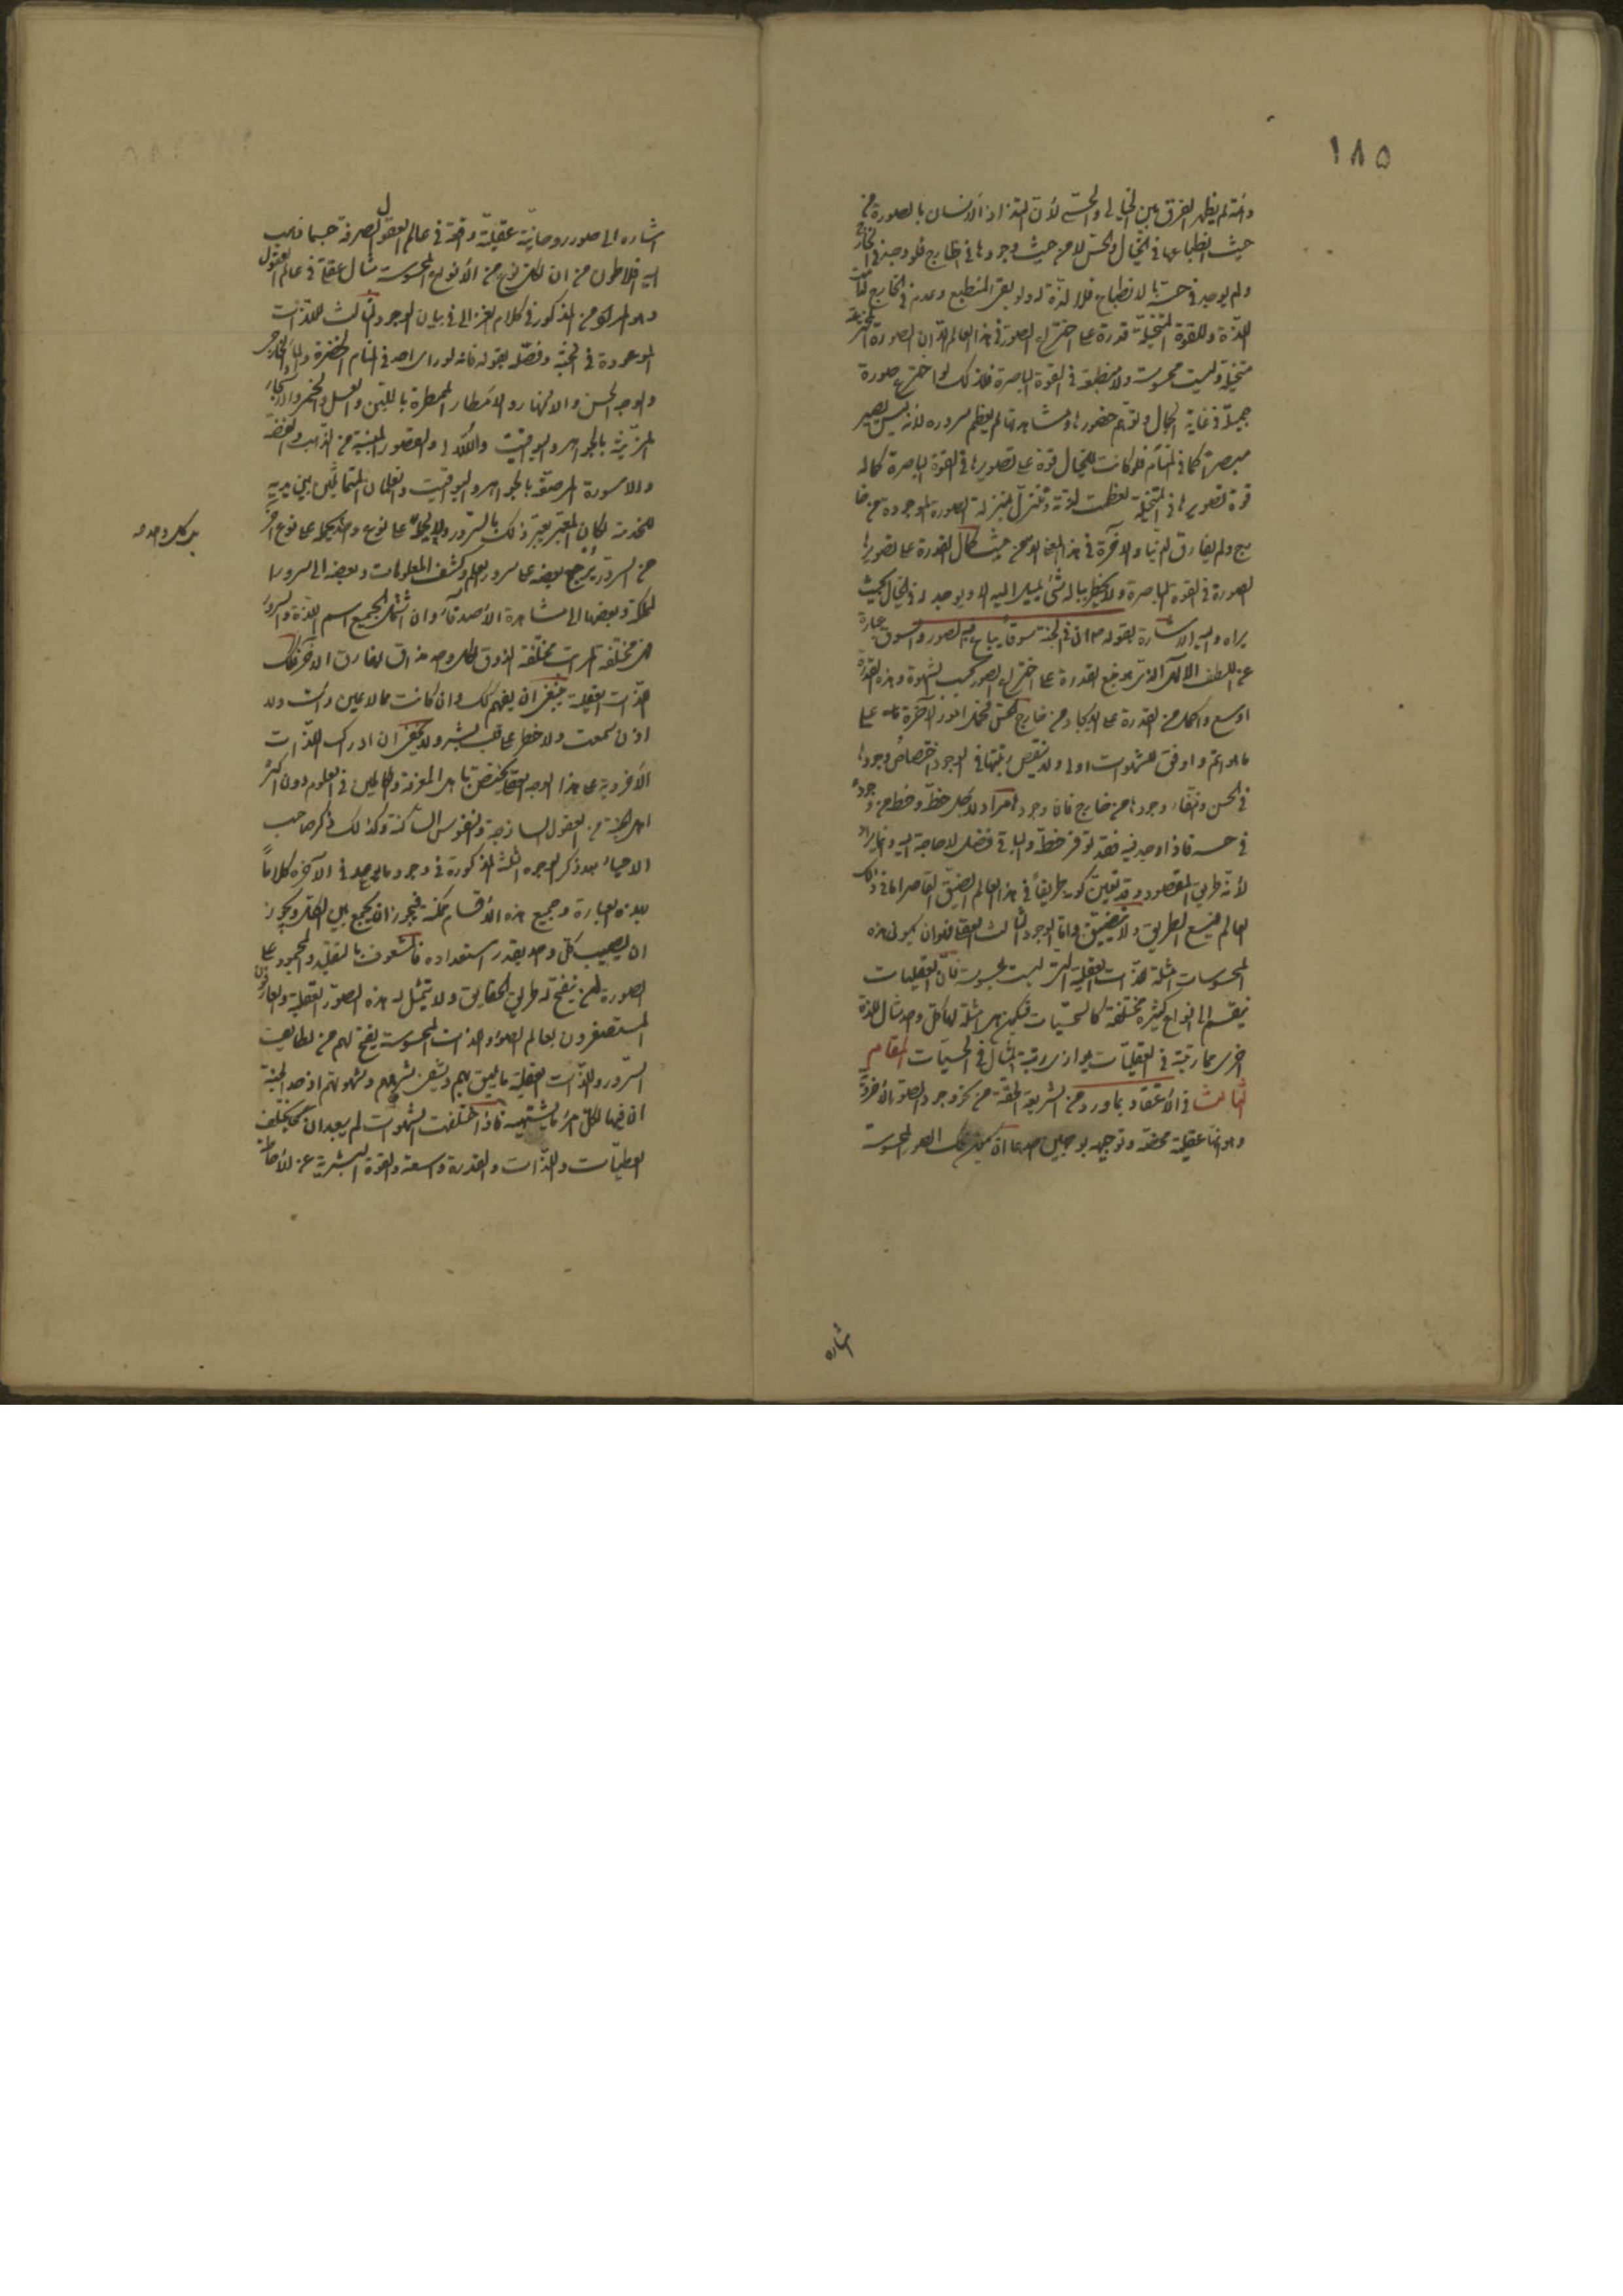 ١٨٥
دائمة لم يظهر الفرق بين الخيالي والحسي لأن التذاذ الانسان بالصورة من
حيث انطباعها في الخيال والحس لا من حيث وجودها في الخارج فلو وجد في الخارج
ولم يوجد في حسه بالانطباع فلا لذة له ولو بقى المنطبع وعدم في الخارج لدامت
اللذة وللقوة المتخيلة قدرة على اختراع الصورة في هذا العالم الا ان الصورة المخترعة
متخيلة وليست محسوسة ولا منطبعة في القوة الباصرة فلذلك لو اخترع صورة
جميلة في غاية الجمال وتوهم حضورها ومشاهدتها لم يعظم سروره لأنه ليس يصير
مبصرا كما في المنام فلو كانت للخيال قوة على تصويرها في القوة الباصرة كما له
قوة تصويرها في المتخيلة لعظمت لذته وتنزل منزلة الصورة الموجودة من خا
رج ولم يفارق الدنيا والآخرة في هذا المعنى الا من حيث كمال القدرة على تصوير
الصورة في القوة الباصرة ولا يخطر بباله شئ يميل اليه الا ويوجد له في الخيال بحيث
يراه واليه الاشارة بقوله ان في الجنة سوقا يباع فيه الصور والسوق عبارة
عن اللطف الالهي الذي هو منبع القدرة على اختراع الصور بحسب الشهوة وهذه القدرة
اوسع واكمل من القدرة على الايجاد من خارج الحس فحمل امور الآخرة على
ما هو اتم واوفق للشهوات اولى ولا ينقص رتبتها في الوجود اختصاص وجودها
في الحس وانتفاء وجودها من خارج فان وجودها مراد لاجل حظه وحظه من وجوده
في حسه فاذا وجد فيه فقد توفر حظه والباقي فضل لا حاجة اليه وانما يراد
لأنه طريق المقصود وقد تعين كونه طريقا في هذا العالم الضيق القاصر اما في ذلك
العالم فيتسع الطريق ولا يتضيق واما الوجود الثالث العقلي فهو ان يكون هذه
المحسوسات امثلة للذات العقلية التي ليست بمحسوسة فان العقليات
ينقسم الى انواع كثيرة مختلفة كالحسيات فيكون هي امثلة لها كل واحد مثال للذة
اخرى مما رتبته في العقليات يوازي رتبة المثال في الحسيات المقام
الثالث في الاعتقاد بما ورد من الشريعة الحقة من نحو وجود الصور الأخروية
وهو انها عقلية محضة وتوجيهه بوجهين احدهما ان يكون تلك الصور المحسوسة
اشاره
اشاره الى صور روحانية عقلية واقعة في عالم العقول الصرفة حسبما ذهب
اليه افلاطون من ان لكل نوع من الأنواع المحسوسة مثال عقلي في عالم العقول
وهو المذكور في كلام الغزالي في بيان الوجود الثالث للذات
الموعودة في الجنة وفصله بقوله فانه لو راى احد في المنام الخضرة والماء الجارى
والوجه الحسن والانهار والامطار الممطرة باللبن والعسل والخمر والاشجار
المزينة بالجواهر واليواقيت واللآلى والقصور المبنية من الذهب والفضة
والاسورة المرصعة بالجواهر واليواقيت والغلمان المتماثلين بين يديه
للخدمة لكان المعبر يعبر ذلك بالسرور ولا يحمله على نوع واحد بل يحمل على نوع آخر
بل كل واحد
من السرور يرجع بعضه على سرور العلم وكشف المعلومات وبعضه الى سرور
المملكة وبعضها الى مشاهدة الأصدقاء وان اشتمل الجميع اسم اللذة والسرور
فهي مختلفة المراتب مختلفة الذوق لكل واحد مذاق يفارق الآخر فكذلك
اللذات العقلية ينبغي ان يفهم كذلك وان كانت مما لا عين رأت ولا
اذن سمعت ولا خطر على قلب بشر ولا يخفى ان ادراك اللذات
الأخروية على هذا الوجه العقلي يختص باهل المعرفة والكاملين في العلوم دون اكثر
اهل الجنة من العقول الساذجة والنفوس الساكنة وكذلك ذكر صاحب
الاحياء بعد ذكر الوجوه الثلث المذكورة في وجود ما يوجد في الآخرة كلاما
بهذه العبارة وجميع هذه الأقسام ممكنة فيجوز ان يجمع بين الكل ويجوز
ان يصيب كل واحد بقدر استعداده فالمشعوف بالتقليد والجمود على
الصورة لم ينفتح له طريق الحقايق ولا يتمثل له هذه الصور العقلية والعارفون
المستصغرون لعالم الصور واللذات المحسوسة يفتح لهم من لطايف
السرور واللذات العقلية ما يليق بهم ويشفى شرههم وشهوتهم اذ حد الجنة
ان فيها لكل امرء ما يشتهيه فاذا اختلفت الشهوات لم يبعد ان يختلف
العطيات واللذات والقدرة واسعة والقوة البشرية عن الأحاطة